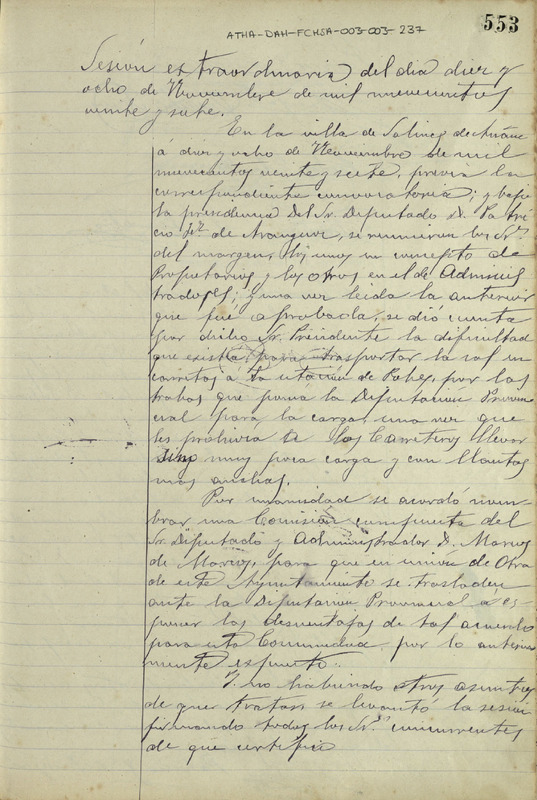 ATHA-DAH-FCHSA-003-003-237
553
Sesión extraordinaria del dia diez y
ocho de Noviembre de mil novecientos
veinte y siete.
En la villa de Salinas de Añana
á diez y ocho de Noviembre de mil
novecientos veinte y siete, previa la
correspondiente convocatoria; y bajo
la presidencia del Sr. Diputado D. Patri
cio Fz. de Aranguiz, se reunieron los Srs.
del margen, los unos en concepto de
Propietarios y los otros en el de Adminis
tradores; y una vez leida la anterior
que fué aprobada, se dió cuenta
por dicho Sr. Presidente la dificultad
que existia para trasportar la sal en
carretas á la estación de Pobes, por las
trabas que ponia la Diputación Provin
cial para la carga, una vez que
les prohivia á los Carreteros llevar
sino muy poca carga y con llantas
mas anchas.
Por unanimidad se acordó nom
brar una Comisión compuesta del
Sr. Diputado y Administrador D. Marcos
de Marcos, para que en unión de Otra
de este Ayuntamiento se trasladen
ante la Diputación Provincial á es
poner las desventajas de tal acuerdo
para esta Comunidad por lo anterior
mente espuesto.
Y no habiendo otros asuntos
de que tratar se levantó la sesión
firmando todos los Srs. concurrentes
de que certifico